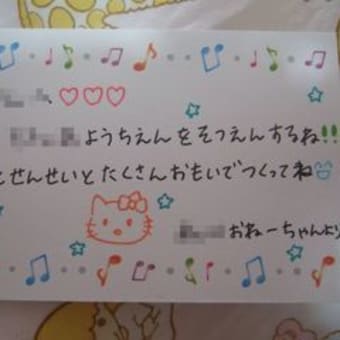 、♡♡♡
ようちえんをそつえんするね!!
とせんせいとたくさんおもいでつくってね
おねーちゃんより